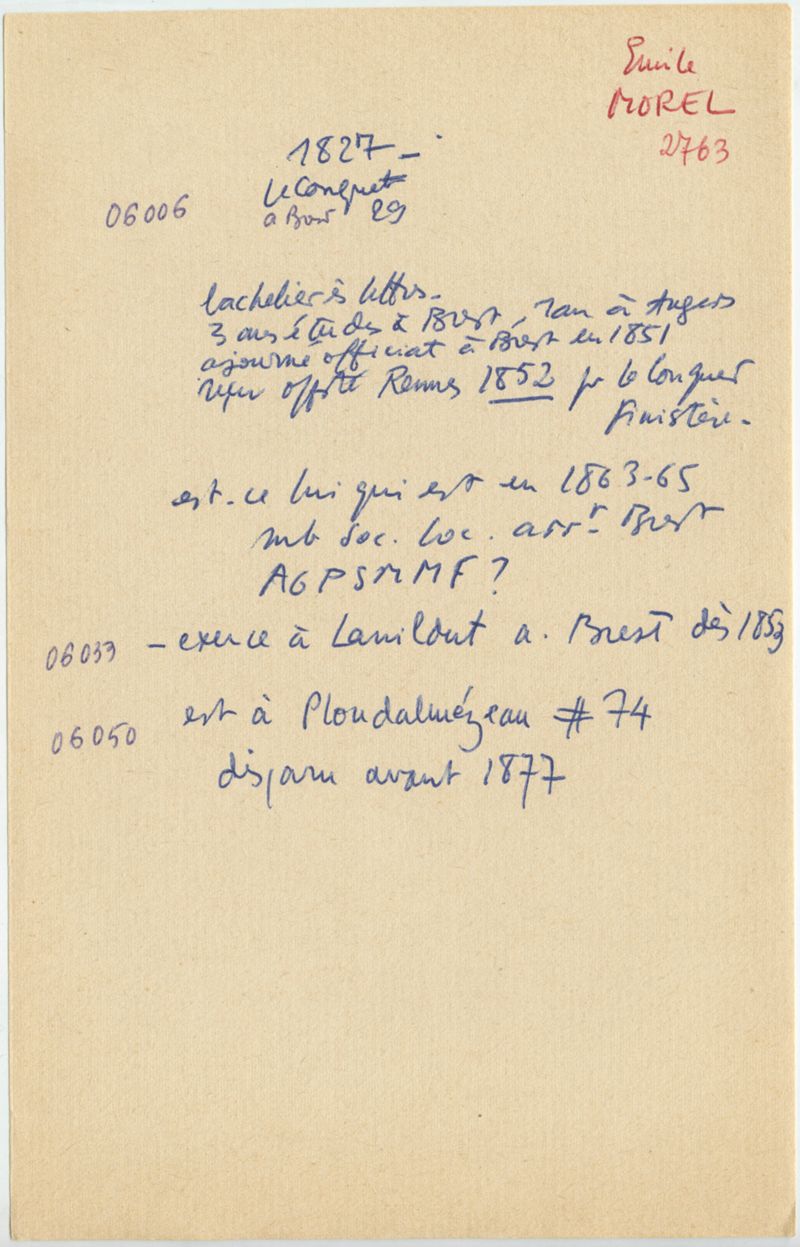 Emile
MOREL
2763
1827 -
06006 Le Conquet
a Brest 29
bachelier ès lettres -
3 ans études à Brest, 1 an à Angers
ajourné officiat à Brest en 1851
reçu offté Rennes 1852 pr le Conquet
Finistère -
est-ce lui qui est en 1863-65
mb soc. loc. arrt Brest
AGPSMMF ?
06033 - exerce à Lanildut a. Brest dès 1853
06050 est à Ploudalmézeau # 74
disparu avant 1877